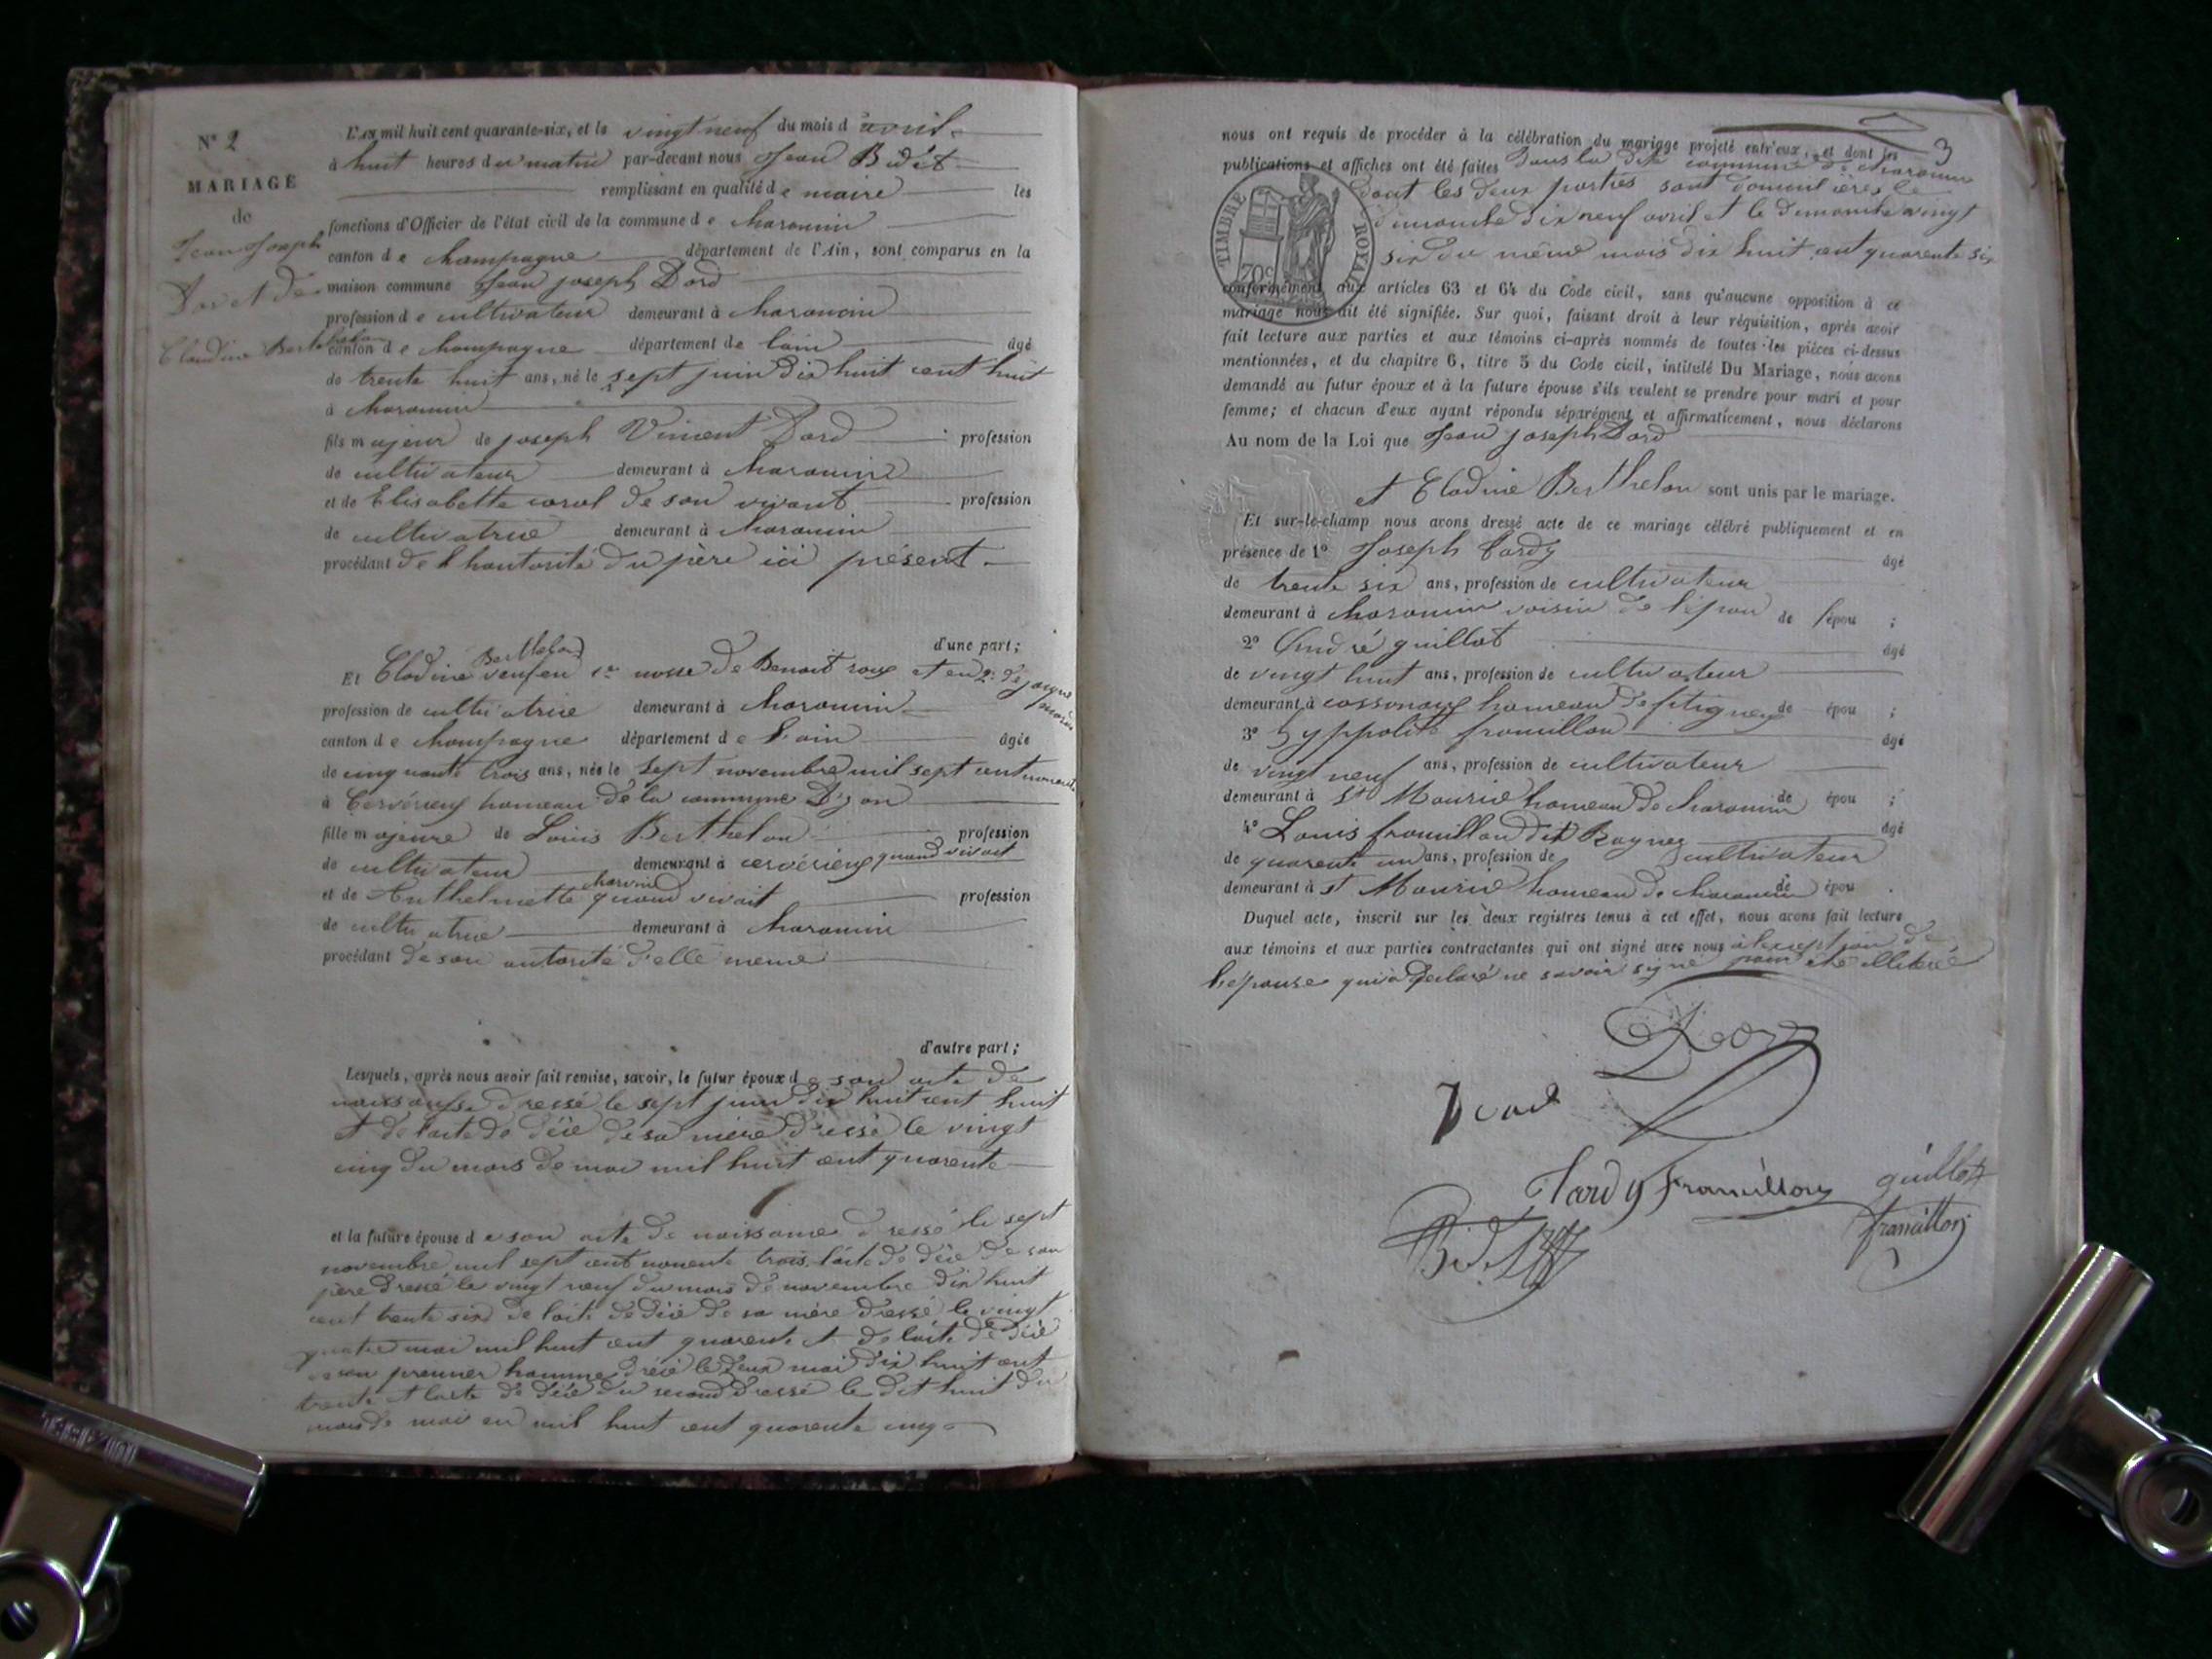 N° 2
MARIAGE
de
Jean Joseph
Dord et de
Claudine Berthelon
L'An mil huit cent quarante-six, et le vingt neuf du mois d'avril
à huit heures du matin par-devant nous Jean Bidet
remplissant en qualité de maire les
fonctions d'Officier de l'état civil de la commune de charancin
canton de champagne département de l'Ain, sont comparus en la
maison commune Jean joseph Dord
profession de cultivateur demeurant à charancin
canton de champagne département de lain âgé
de trente huit ans, né le sept juin dix huit cent huit
à charancin
fils majeur de joseph Vincent Dord profession
de cultivateur demeurant à charancin
et de Elisabette carol de son vivant profession
de cultivatrice demeurant à charancin
procédant de l'hautorité du père ici présent
d'une part;
Et Clodine Berthelon veuf en 1re nosse de Benoit roux et en 2e de jacque
profession de cultivatrice demeurant à charancin
canton de champagne département de l'ain âgée
de cinquante trois ans, née le sept novembre mil sept cent
à Cervérieux hameau de la commune D'
fille majeure de Louis Berthelon profession
de cultivateur demeurant à cervérieux quand vivait
et de Anthelmette charvin quand vivait profession
de cultivatrice demeurant à charancin
procédant de son autorité d'elle meme
d'autre part;
Lesquels, après nous avoir fait remise, savoir, le futur époux de son acte de
naissance dressé le sept juin dix huit cent huit
et de l'acte de décè de sa mère dressé le vingt
cinq du mois de mai mil huit cent quarente
et la future épouse de son acte de naissance dressé le sept
novembre mil sept cent nonente trois, l'acte de décè de son
père dressé le vingt neuf du mois de novembre dix huit
cent trente six de l'acte de décè de sa mère dressé le vingt
quatre mai mil huit cent quarente et de l'acte de décè
de son premier homme dréssé le deux mai dix huit cent
trente et l'acte de décè du second dressé le dix huit du
mois de mai en mil huit cent quarente cinq
3
nous ont requis de procéder à la célébration du mariage projeté entr'eux, et dont les
publications et affiches ont été faites dans la dite commune de charancin
dont les deux parties sont domicilières le
dimanche dix neuf avril et le dimanche vingt
six du même mois dix huit cent quarente six
TIMBRE ROYAL
70c
conformément aux articles 63 et 64 du Code civil, sans qu'aucune opposition à ce
mariage nous ait été signifiée. Sur quoi, faisant droit à leur réquisition, après avoir
fait lecture aux parties et aux témoins ci-après nommés de toutes les pièces ci-dessus
mentionnées, et du chapitre 6, titre 5 du Code civil, intitulé Du Mariage, nous avons
demandé au futur époux et à la future épouse s'ils veulent se prendre pour mari et pour
femme; et chacun d'eux ayant répondu séparément et affirmativement, nous déclarons
Au nom de la Loi que Jean joseph Dord
et Clodine Berthelon sont unis par le mariage.
Et sur-le-champ nous avons dressé acte de ce mariage célébré publiquement et en
présence de 1° Joseph tardy âgé
de trente six ans, profession de cultivateur
demeurant à charancin voisin de l'épou de l'épou ;
2° André guillot âgé
de vingt huit ans, profession de cultivateur
demeurant à hameau de de épou ;
3° hyppolite framillon âgé
de vingt neuf ans, profession de cultivateur
demeurant à St Maurice hameau de charancin de épou ;
4° Louis framillon dit âgé
de quarente un ans, profession de cultivateur
demeurant à St Maurice hameau de charancin de épou .
Duquel acte, inscrit sur les deux registres tenus à cet effet, nous avons fait lecture
aux témoins et aux parties contractantes qui ont signé avec nous à l'exception de
l'épouse qui a declaré ne savoir signé pour être illiteré
Dord
Tardy framillon guillot
Bidet framillon